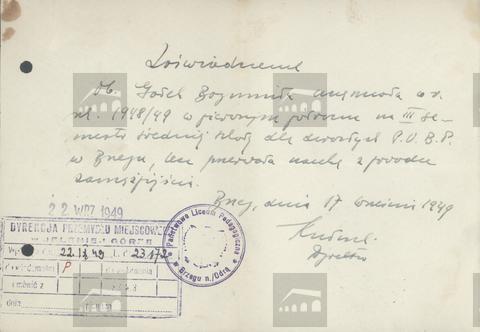 Zaświadczenie
Ob. Gołek Bogumiła uczęszczała w r.
szk. 1948/49 w pierwszym półroczu na III se-
mestr średniej szkoły dla dorosłych P.U.B.P.
w Brzegu, lecz przerwała naukę z powodu
zamążpójścia.
Brzeg, dnia 17 września 1949
22 WRZ 1949
DYREKCJA PRZEMYSŁU MIEJSCOWEGO
W JELENIEJ GÓRZE
22.IX.49 L. 23172
P
dnia
Państwowe Liceum Pedagogiczne
w Brzegu n./Odrą
Dyrektor